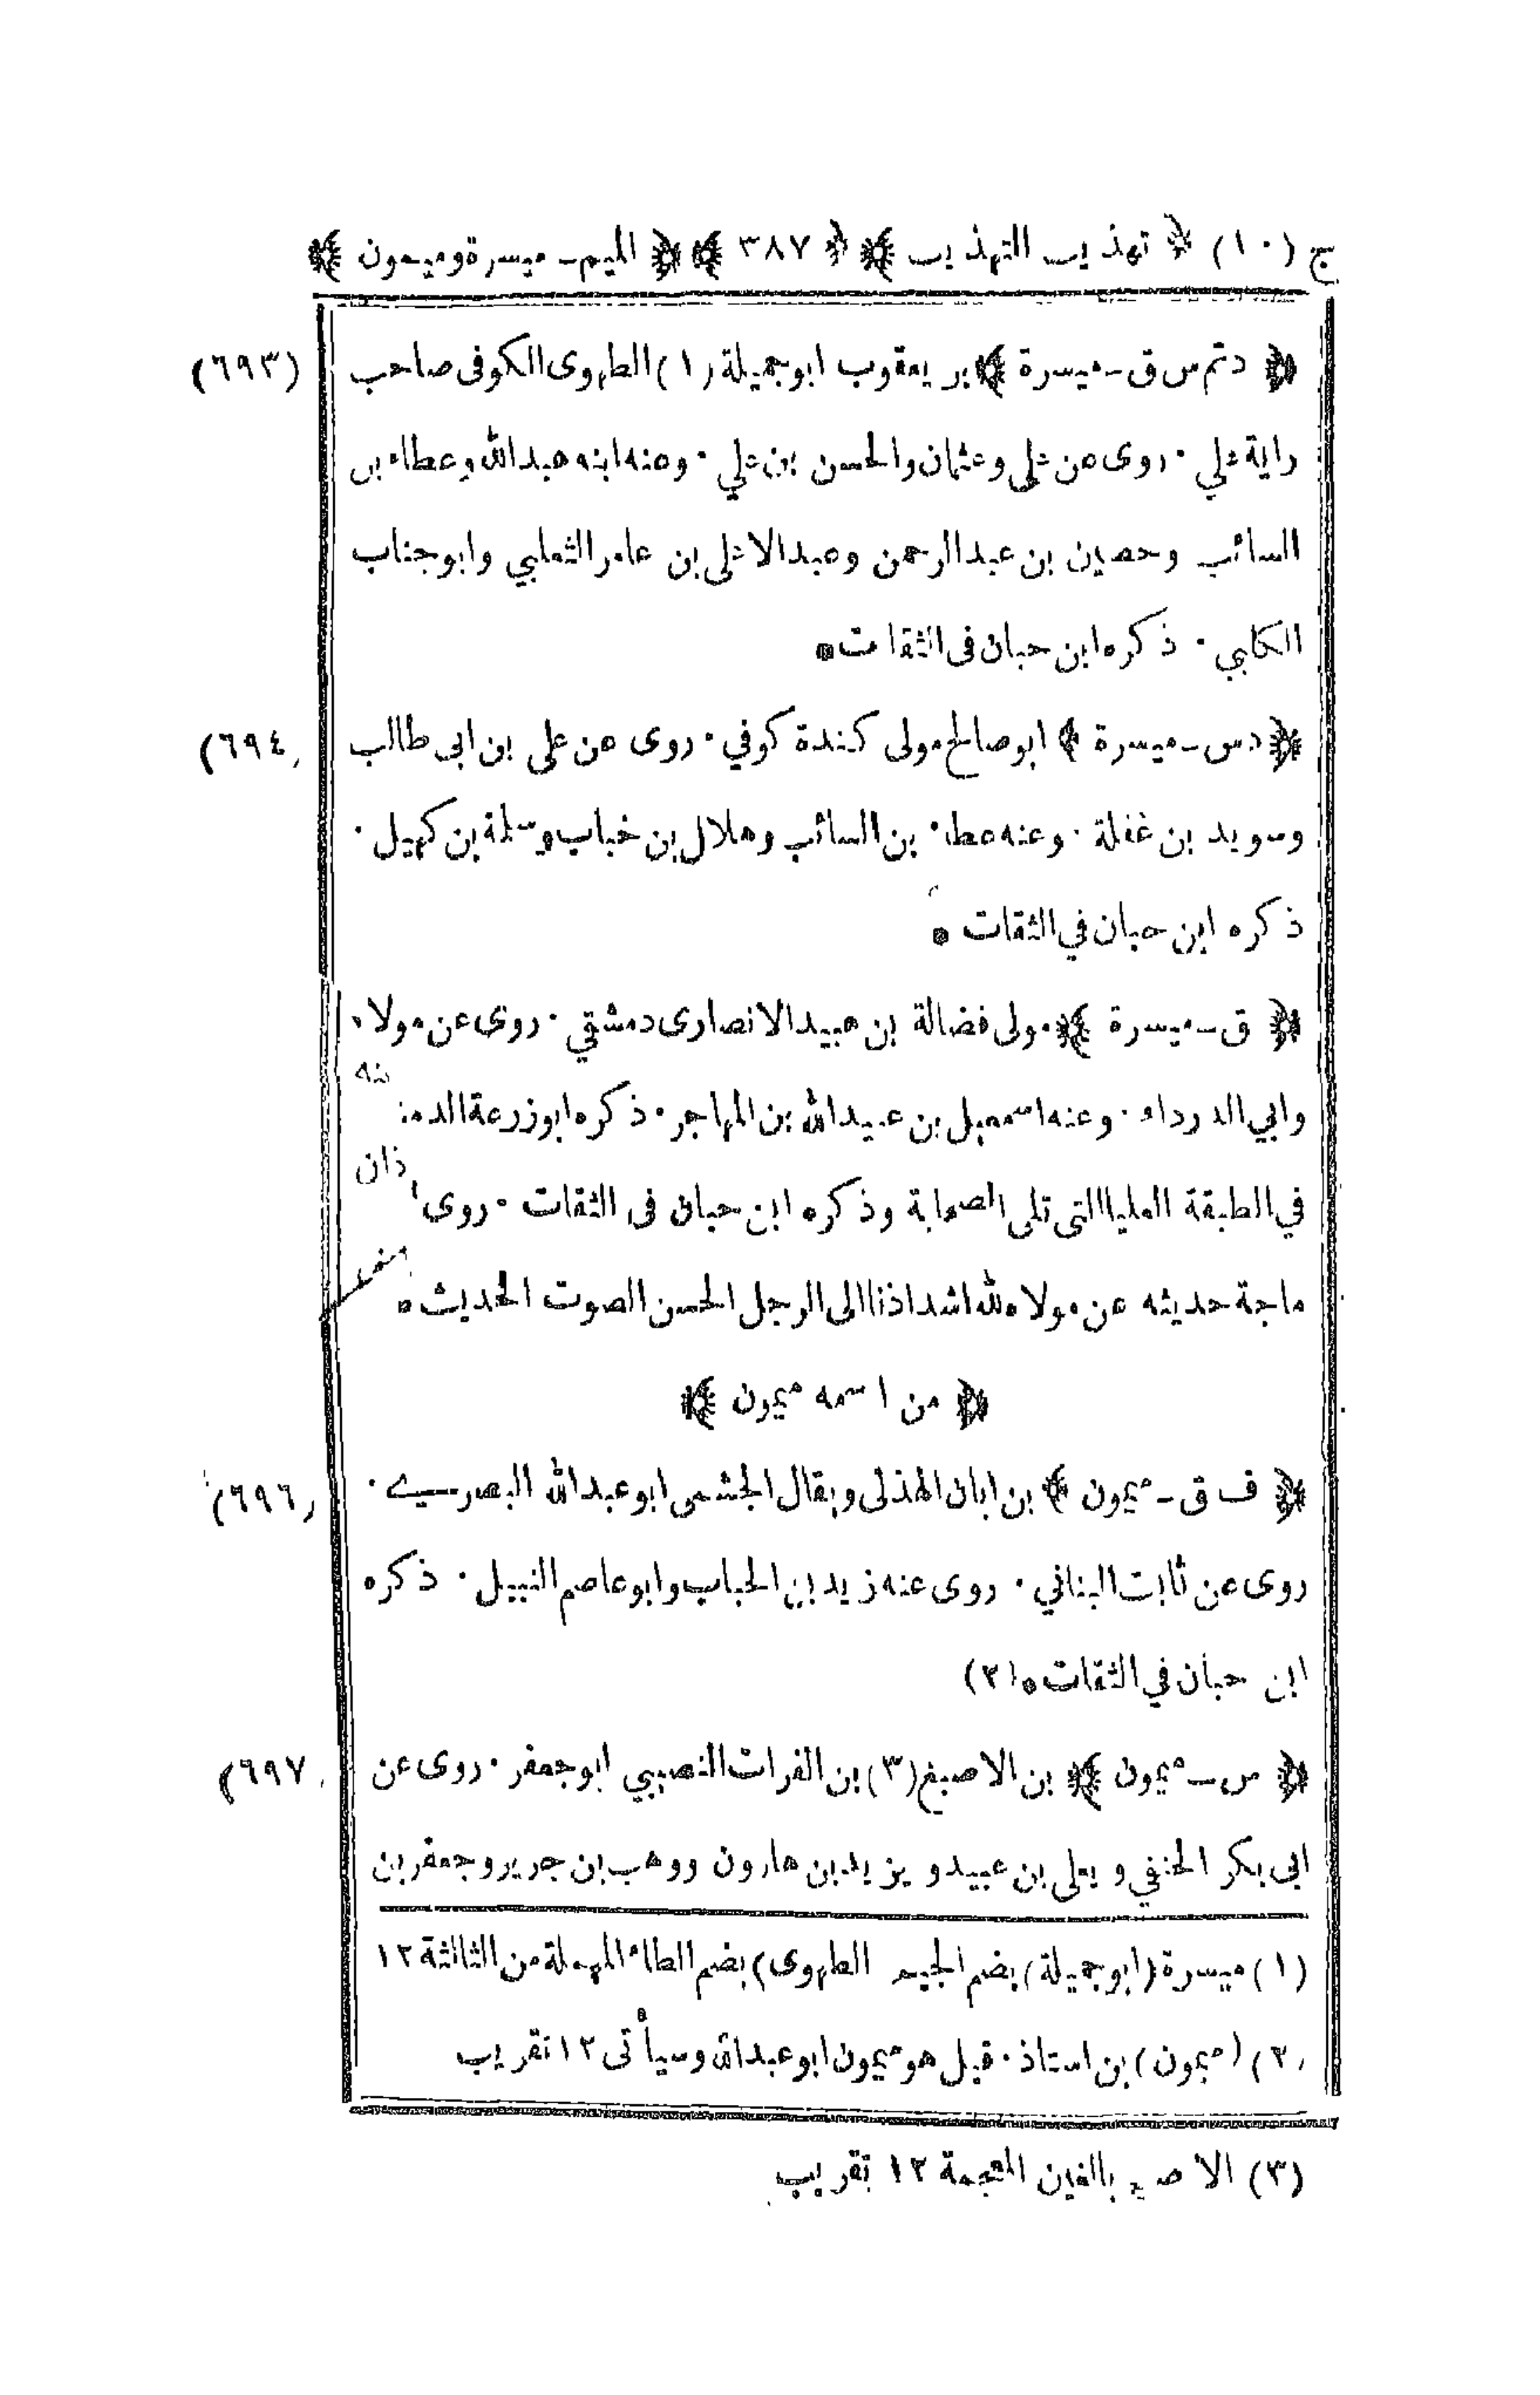 ج (١٠) ﴿ تهذيب التهذيب ﴾ ﴿ ٣٨٧ ﴾ ﴿ الميم ـ ميسرة وميمون ﴾
(٦٩٣) ﴿ د تم س ق ـ ميسرة ﴾ بن يعقوب ابو جميلة (١) الطهوى الكوفى صاحب
راية علي ٠ روى عن على وعثمان والحسن بن علي ٠ وعنه ابنه عبدالله وعطاء بن
السائب وحصين بن عبدالرحمن وعبدالاعلى بن عامر الثعلبي وابو جناب
الكلبي ٠ ذكره ابن حبان فى الثقات ٠
(٦٩٤) ﴿ د س ـ ميسرة ﴾ ابو صالح مولى كندة كوفي ٠ روى عن على بن ابى طالب
وسويد بن غفلة ٠ وعنه عطاء بن السائب وهلال بن خباب وسلمة بن كهيل ٠
ذكره ابن حبان في الثقات ٠
﴿ ق ـ ميسرة ﴾ مولى فضالة بن عبيد الانصارى دمشقي ٠ روى عن مولاه
وابي الدرداء ٠ وعنه اسمعيل بن عبيدالله بن المهاجر ٠ ذكره ابو زرعة
في الطبقة العليا التى تلى الصحابة وذكره ابن حبان فى الثقات ٠ روى
ماجة حديثه عن مولاه لله اشد اذنا الى الرجل الحسن الصوت الحديث ٠
﴿ من اسمه ميمون ﴾
(٦٩٦) ﴿ ف ق ـ ميمون ﴾ بن ابان الهذلى ويقال الجشمى ابو عبدالله البصرى ٠
روى عن ثابت البناني ٠ روى عنه زيد بن الحباب وابو عاصم النبيل ٠ ذكره
ابن حبان في الثقات ٠ (٢)
(٦٩٧) ﴿ س ـ ميمون ﴾ بن الاصبغ (٣) بن الفرات النصيبي ابو جعفر ٠ روى عن
ابى بكر الحنفي ويعلى بن عبيد ويزيد بن هارون ووهب بن جرير وجعفر بن
(١) ميسرة (ابو جميلة) بضم الجيم الطهوى) بضم الطاء المهملة من الثالثة ١٢
(٢) (ميمون) بن استاذ ٠ قيل هو ميمون ابو عبدالله وسيأتى ١٢ تقريب
(٣) بالغين المعجمة ١٢ تقريب